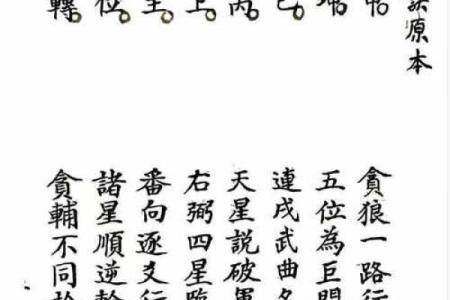 訣原本
貪狼一路行
坤。五位為巨門
連戌武曲名
丙。天星説破軍
上。右弼四星臨
番向逐爻行
位。諸星順逆輪
轉。貪輔不同